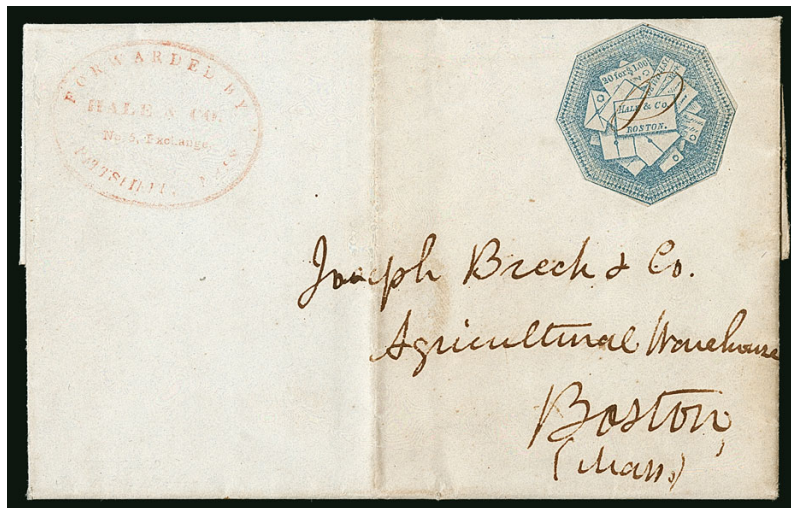 FORWARDED BY
HALE & CO.
No. 5, Exchange,
20 for $1.00
HALE & CO.
BOSTON.
Joseph Breck & Co.
Agricultural Warehouse
Boston,
(Mass.)